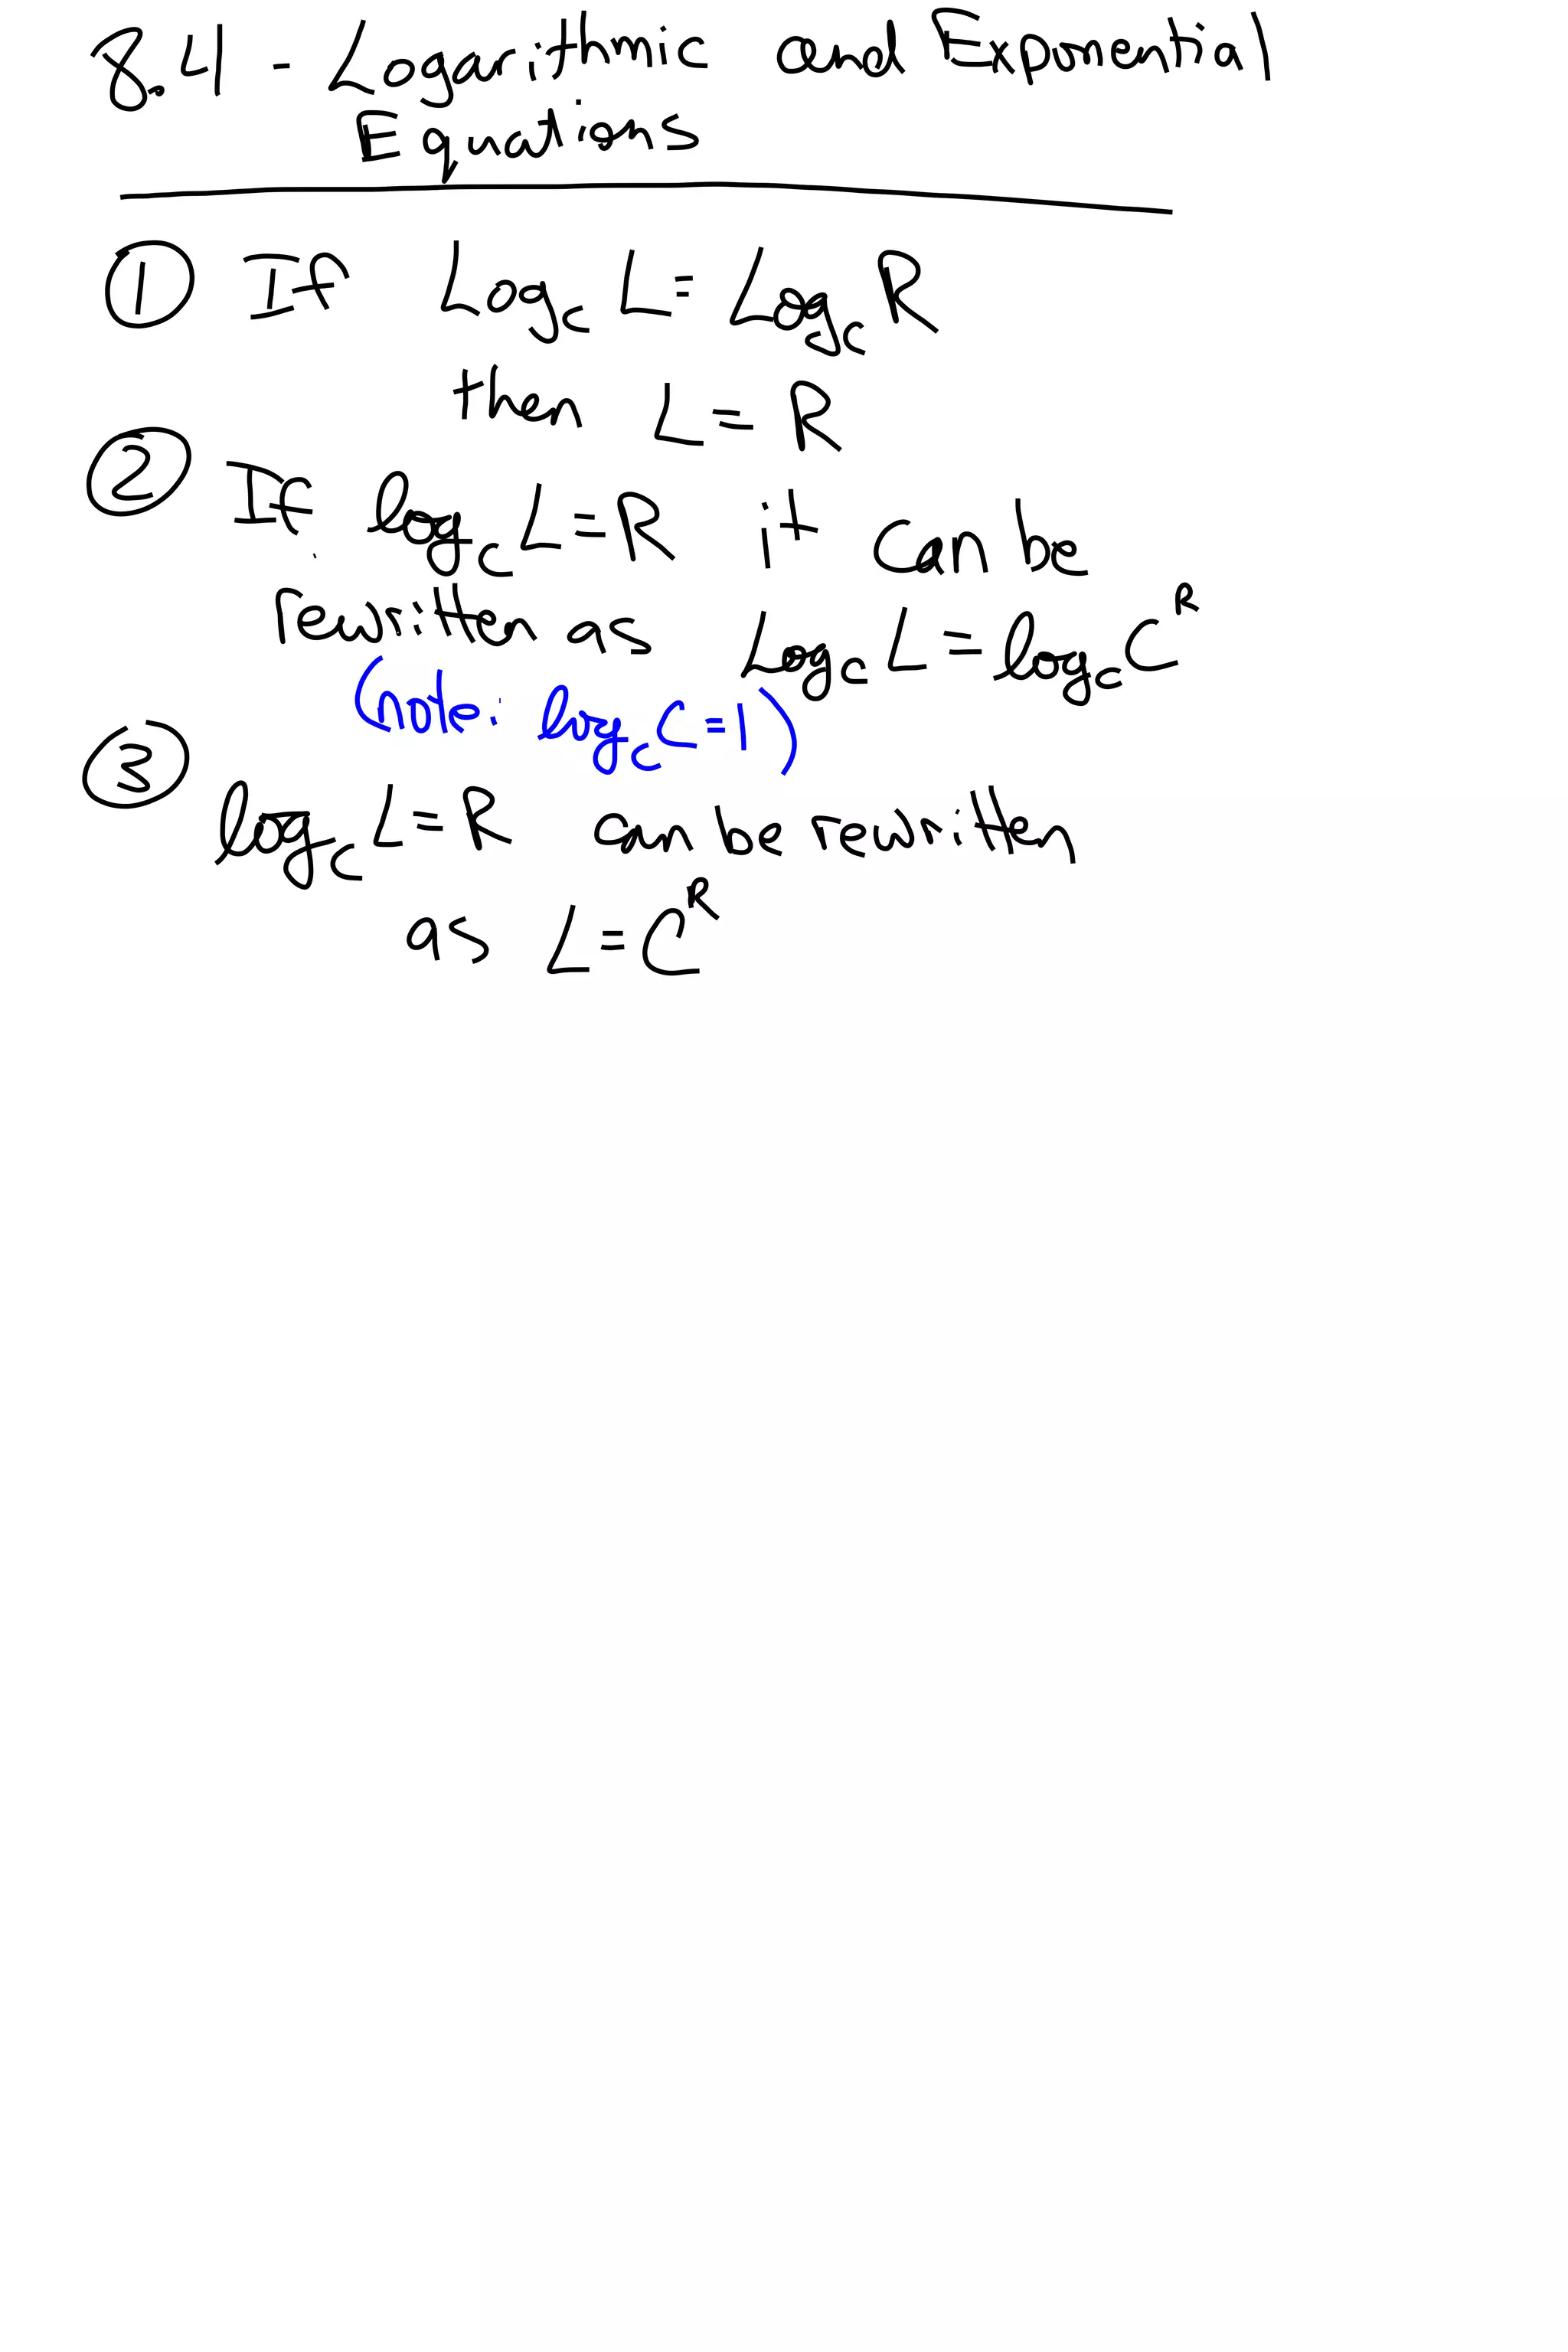 8.4 - Logarithmic and Exponential
Equations
① If Log_c L = Log_c R
then L = R
② If log_c L = R it can be
rewritten as Log_c L = log_c C^R
(note: log_c C = 1)
③
log_c L = R can be rewritten
as L = C^R